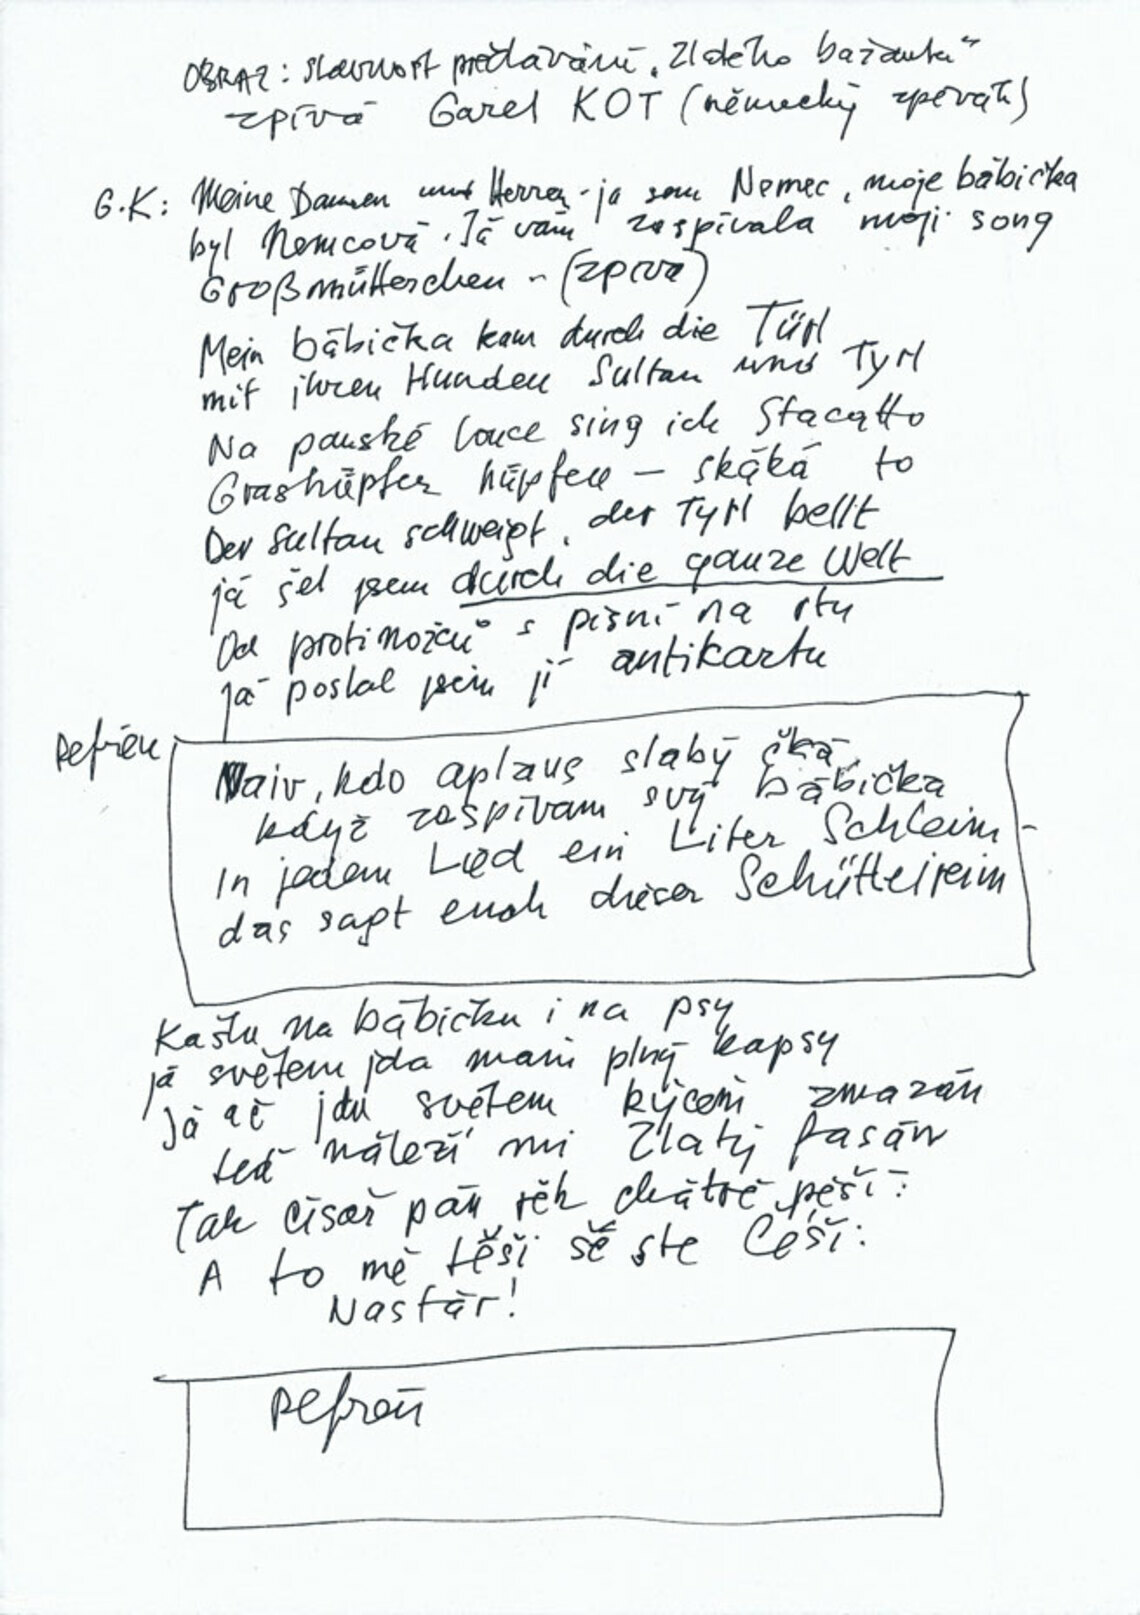 OBRAZ: slavnost předávání „Zlatého bažanta“
zpívá Garel KOT (německý zpěvák)
G.K: Meine Damen und Herren - ja sem Nemec, moje bábička
byl Nemcová. Já vám zaspívala moji song
Großmütterchen - (zpívá)
Mein bábička kam durch die Türl
mit ihren Hunden Sultan und Tyrl
Na panské louce sing ich Stacatto
Grashüpfer hüpfen - skáká to
Der Sultan schweigt, der Tyrl bellt
já šel jsem durch die ganze Welt
Od protinožců s písní na rtu
já poslal jsem jí antikartu
Refrén
Naiv, kdo aplaus slabý čká,
když zaspívam svý bábička
In jedem Lied ein Liter Schleim -
das sagt euch dieser Schüttelreim
Kašlu na bábičku i na psy
já světem jda mam plný kapsy
Já ač jdu světem kýčem zmazán
teď náleží mi Zlatý fasán
Tak císař pán řek chátře pěší:
A to mě těší še ste Češi:
Nastár!
Refrén